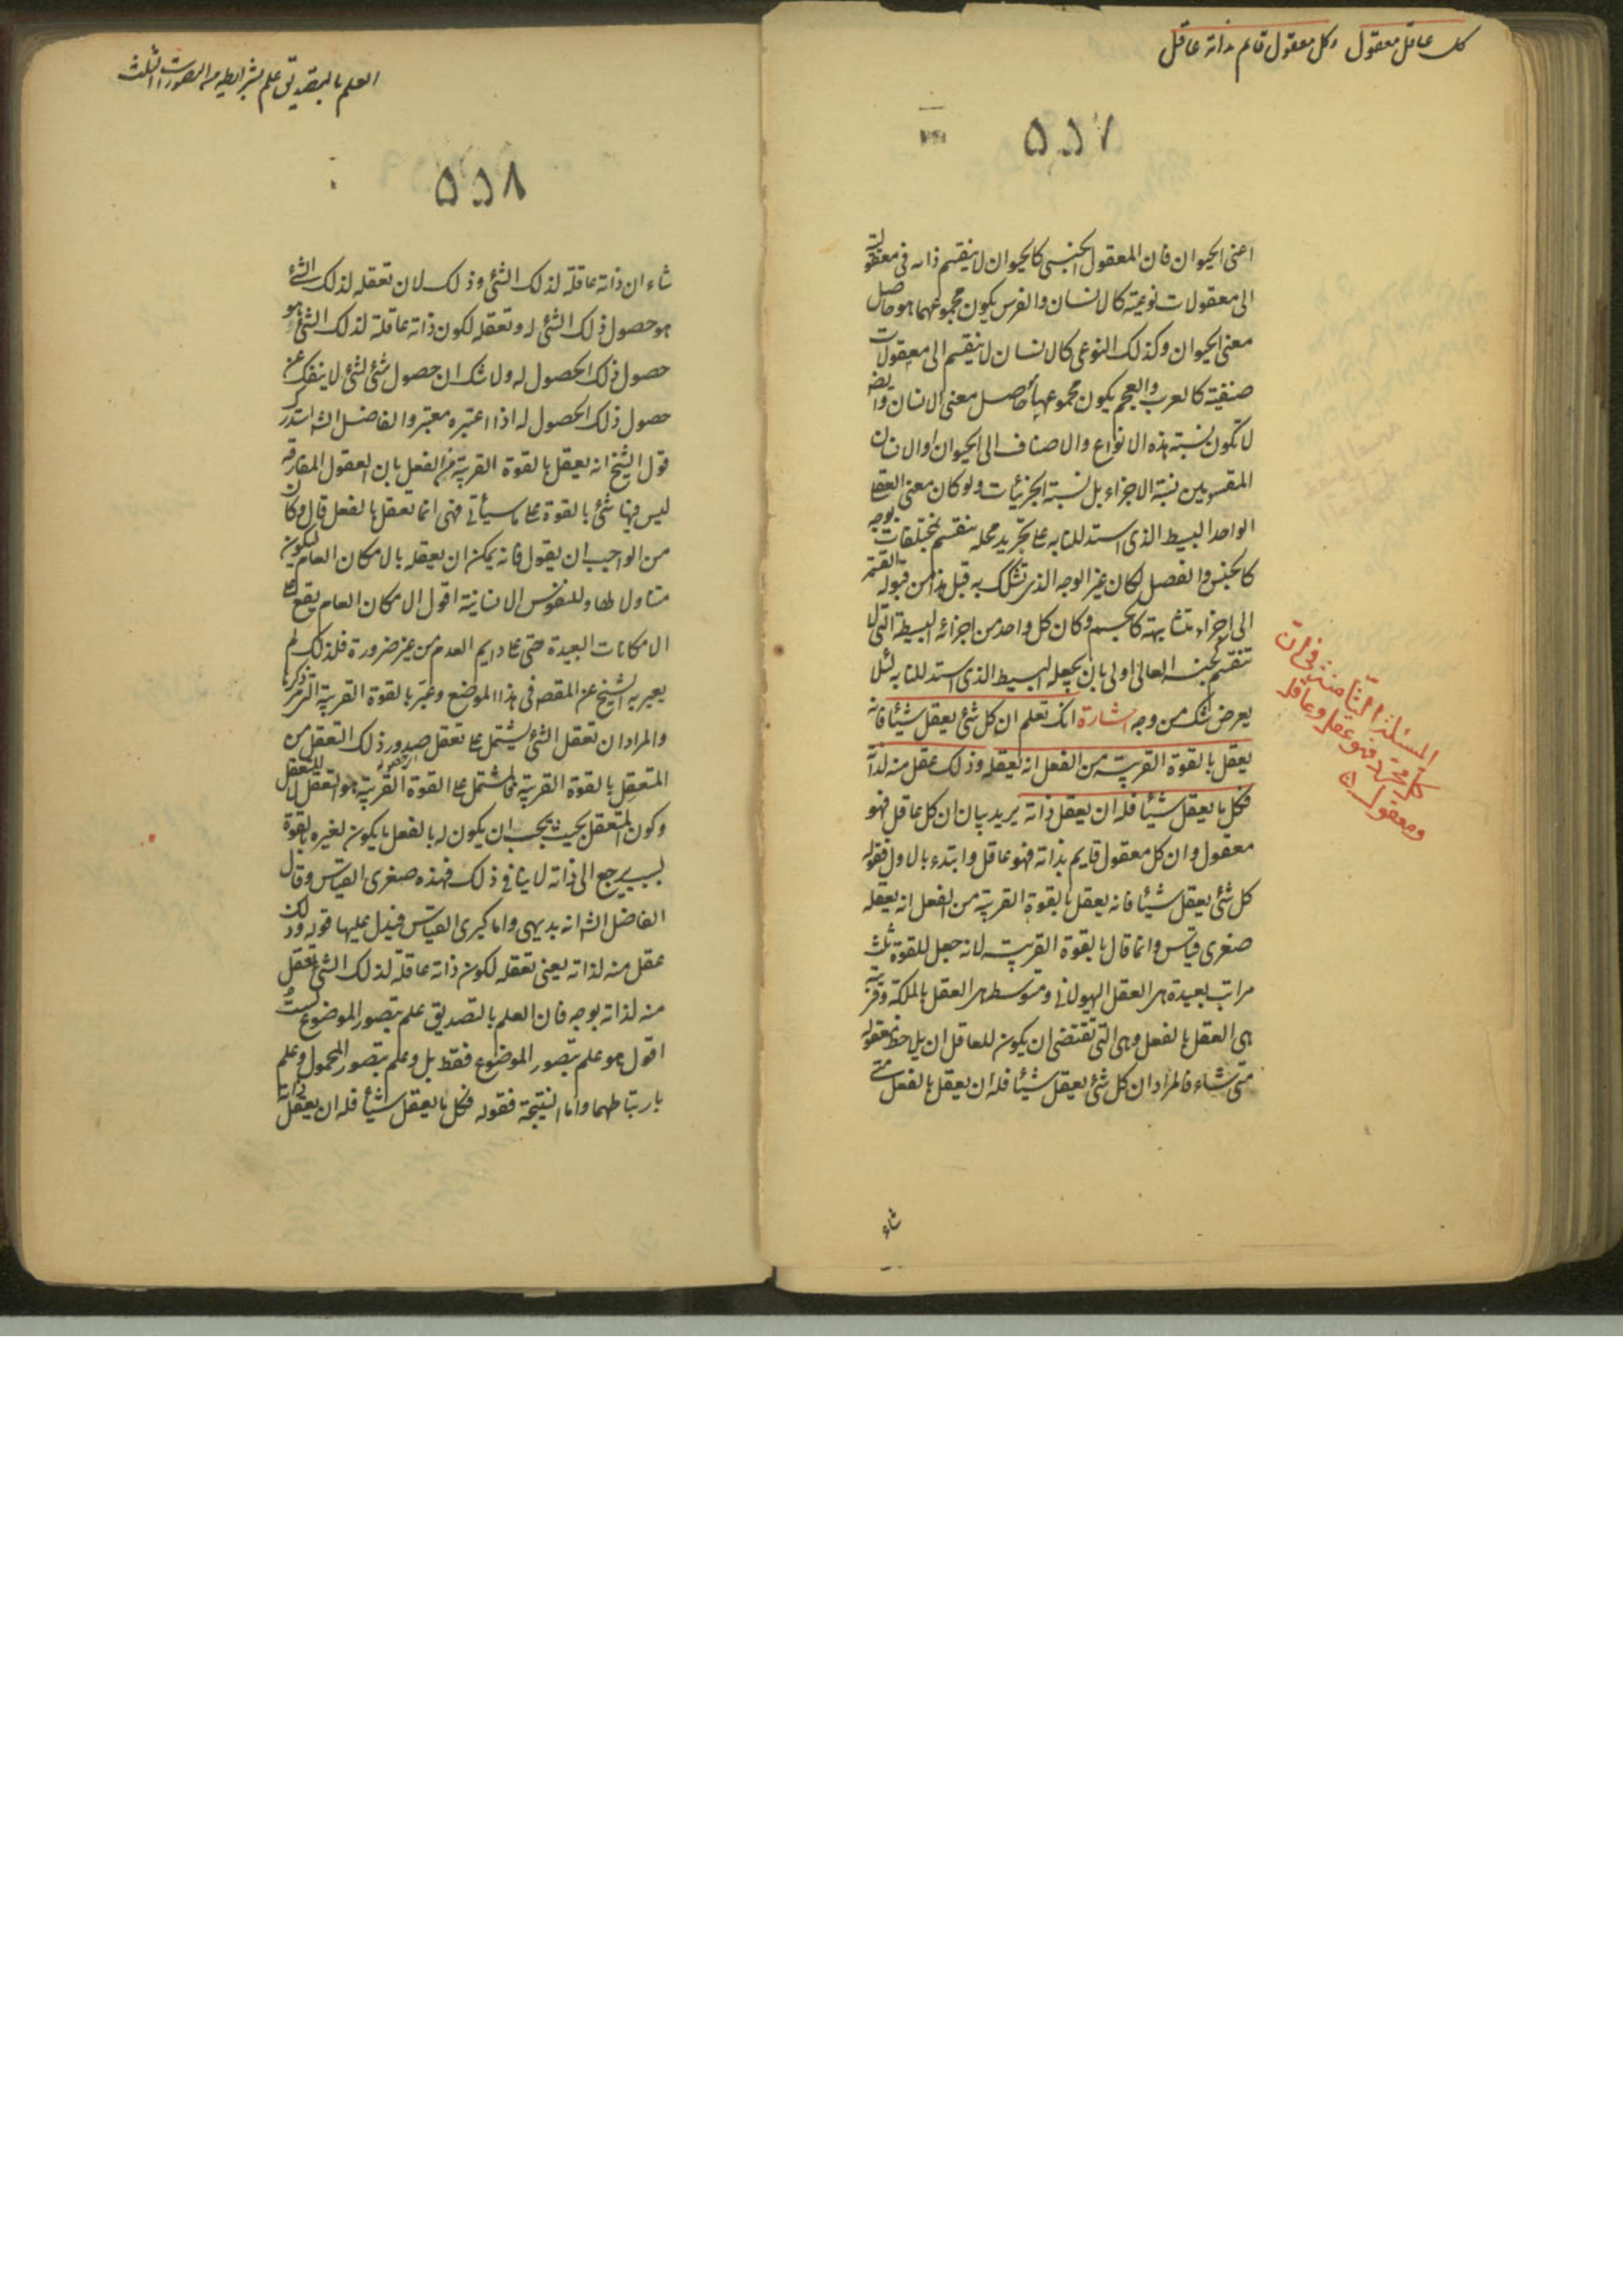 كل عاقل معقول وكل معقول قائم بذاته عاقل
۵۵۷
اعنى الحيوان فان المعقول الجنسى كالحيوان لا ينقسم ذاته فى معقوليته
الى معقولات نوعية كالانسان والفرس يكون مجموعهما هو حاصل
معنى الحيوان وكذلك النوعى كالانسان لا ينقسم الى معقولات
صنفية كالعرب والعجم يكون مجموعهما حاصل معنى الانسان وايضا
لا تكون نسبة هذه الانواع والاصناف الى الحيوان او الانسان
المقسومين نسبة الاجزاء بل نسبة الجزئيات ولو كان معنى العقلى
الواحد البسيط الذى استدللنا به على تجريد محله ينقسم بمختلفات بوجه
كالجنس والفصل لكان غير الوجه الذى تشكك به قبل هذا من قبوله القسمة
الى اجزاء متشابهة كالجسم وكان كل واحد من اجزائه البسيطة التى لا
تنقسم كجنسه العالى اولى بان يجعله البسيط الذى استدللنا به لئلا
يعرض شك من وجه اشارة انك تعلم ان كل شئ يعقل شيئا فانه
يعقل بالقوة القريبة من الفعل انه يعقله وذلك عقل منه لذاته
فكل ما يعقل شيئا فله ان يعقل ذاته يريد بيان ان كل عاقل فهو
معقول وان كل معقول قايم بذاته فهو عاقل وابتدء بالاول فقوله
كل شئ يعقل شيئا فانه يعقل بالقوة القريبة من الفعل انه يعقله
صغرى قياس وانما قال بالقوة القريبة لانه جعل للقوة ثلث
مراتب بعيدة هى العقل الهيولانى ومتوسط هى العقل بالملكة وقريبة
هى العقل بالفعل وهى التى تقتضى ان يكون للعاقل ان يلاحظ معقوله
متى شاء فالمراد ان كل شئ يعقل شيئا فله ان يعقل بالفعل متى
شاء
المسئلة الثامنة فى ان
كل مجرد فهو عقل وعاقل
ومعقول
العلم بالتصديق علم بشرايطه من التصورات الثلث
۵۵۸
شاء ان ذاته عاقلة لذلك الشئ وذلك لان تعقله لذلك الشئ
هو حصول ذلك الشئ له وتعقله لكون ذاته عاقلة لذلك الشئ هو
حصول ذلك الحصول له ولا شك ان حصول شئ لشئ لا ينفك عن
حصول ذلك الحصول له اذا اعتبره معتبر والفاضل الشا استدرك
قول الشيخ انه يعقل بالقوة القريبة من الفعل بان العقول المفارقة
ليس فيها شئ بالقوة على ما سيأتى فهى انما تعقل بالفعل قال وكان
من الواجب ان يقول فانه يمكن ان يعقله بالامكان العام ليكون
متناولا لها وللنفوس الانسانية اقول الامكان العام يقع على
الامكانات البعيدة حتى على دايم العدم من غير ضرورة فلذلك لم
يعبر به الشيخ عن المقصد فى هذا الموضع وعبر بالقوة القريبة التى مر ذكرها
والمراد ان تعقل الشئ يشتمل على تعقل صدور ذلك التعقل من
المتعقل بالقوة القريبة فالمشتمل على القوة القريبة هو التعقل لا المتعقل
وكون المتعقل بحيث يجب ان يكون له بالفعل ما يكون لغيره بالقوة
بسبب يرجع الى ذاته لا ينافى ذلك فهذه صغرى القياس وقال
الفاضل الشا انه بديهى واما كبرى القياس فيدل عليها قوله وذلك
عقل منه لذاته يعنى تعقله لكون ذاته عاقلة لذلك الشئ تعقل
منه لذاته بوجه فان العلم بالتصديق علم بتصور الموضوع لست
اقول هو علم بتصور الموضوع فقط بل وعلم بتصور المحمول وعلم
بارتباطهما واما النتيجة فقوله فكل ما يعقل شيئا فله ان يعقل ذاته